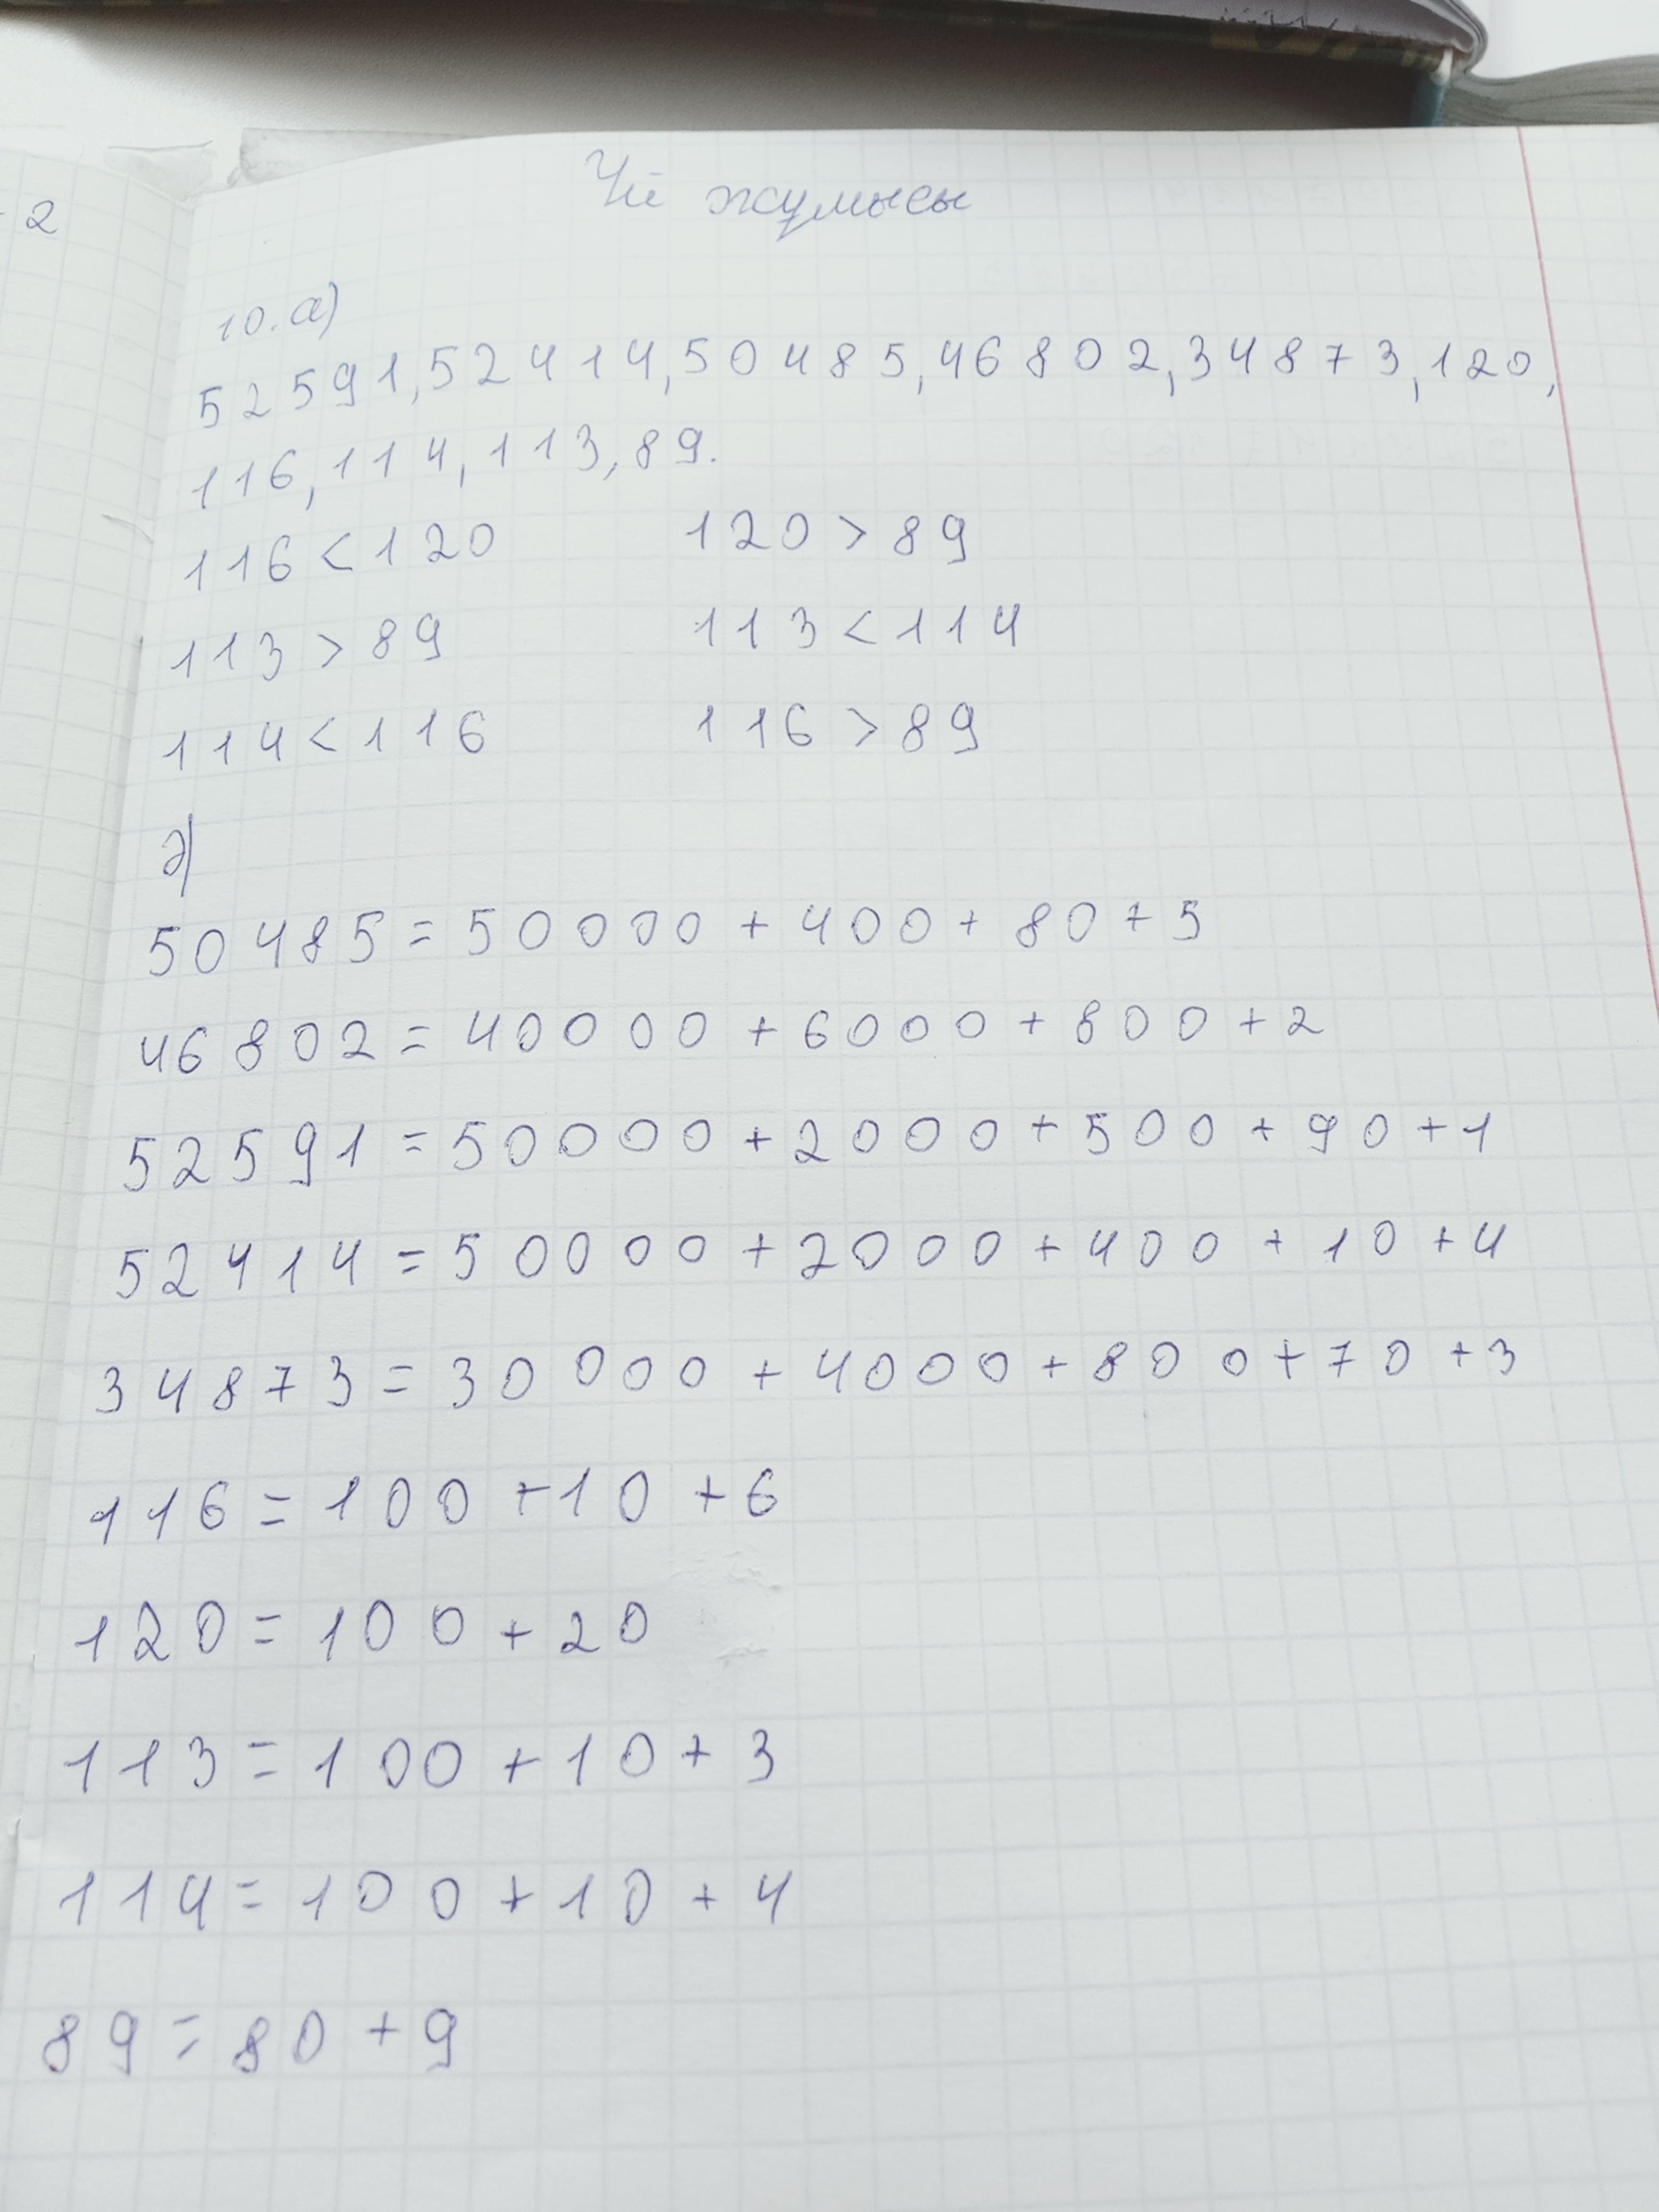 2
Үй жұмысы
10.а)
52591,52414,50485,46802,34873,120,
116,114,113,89.
116<120 120>89
113>89 113<114
114<116 116>89
ә)
50485=50000+400+80+5
46802=40000+6000+800+2
52591=50000+2000+500+90+1
52414=50000+2000+400+10+4
34873=30000+4000+800+70+3
116=100+10+6
120=100+20
113=100+10+3
114=100+10+4
89=80+9